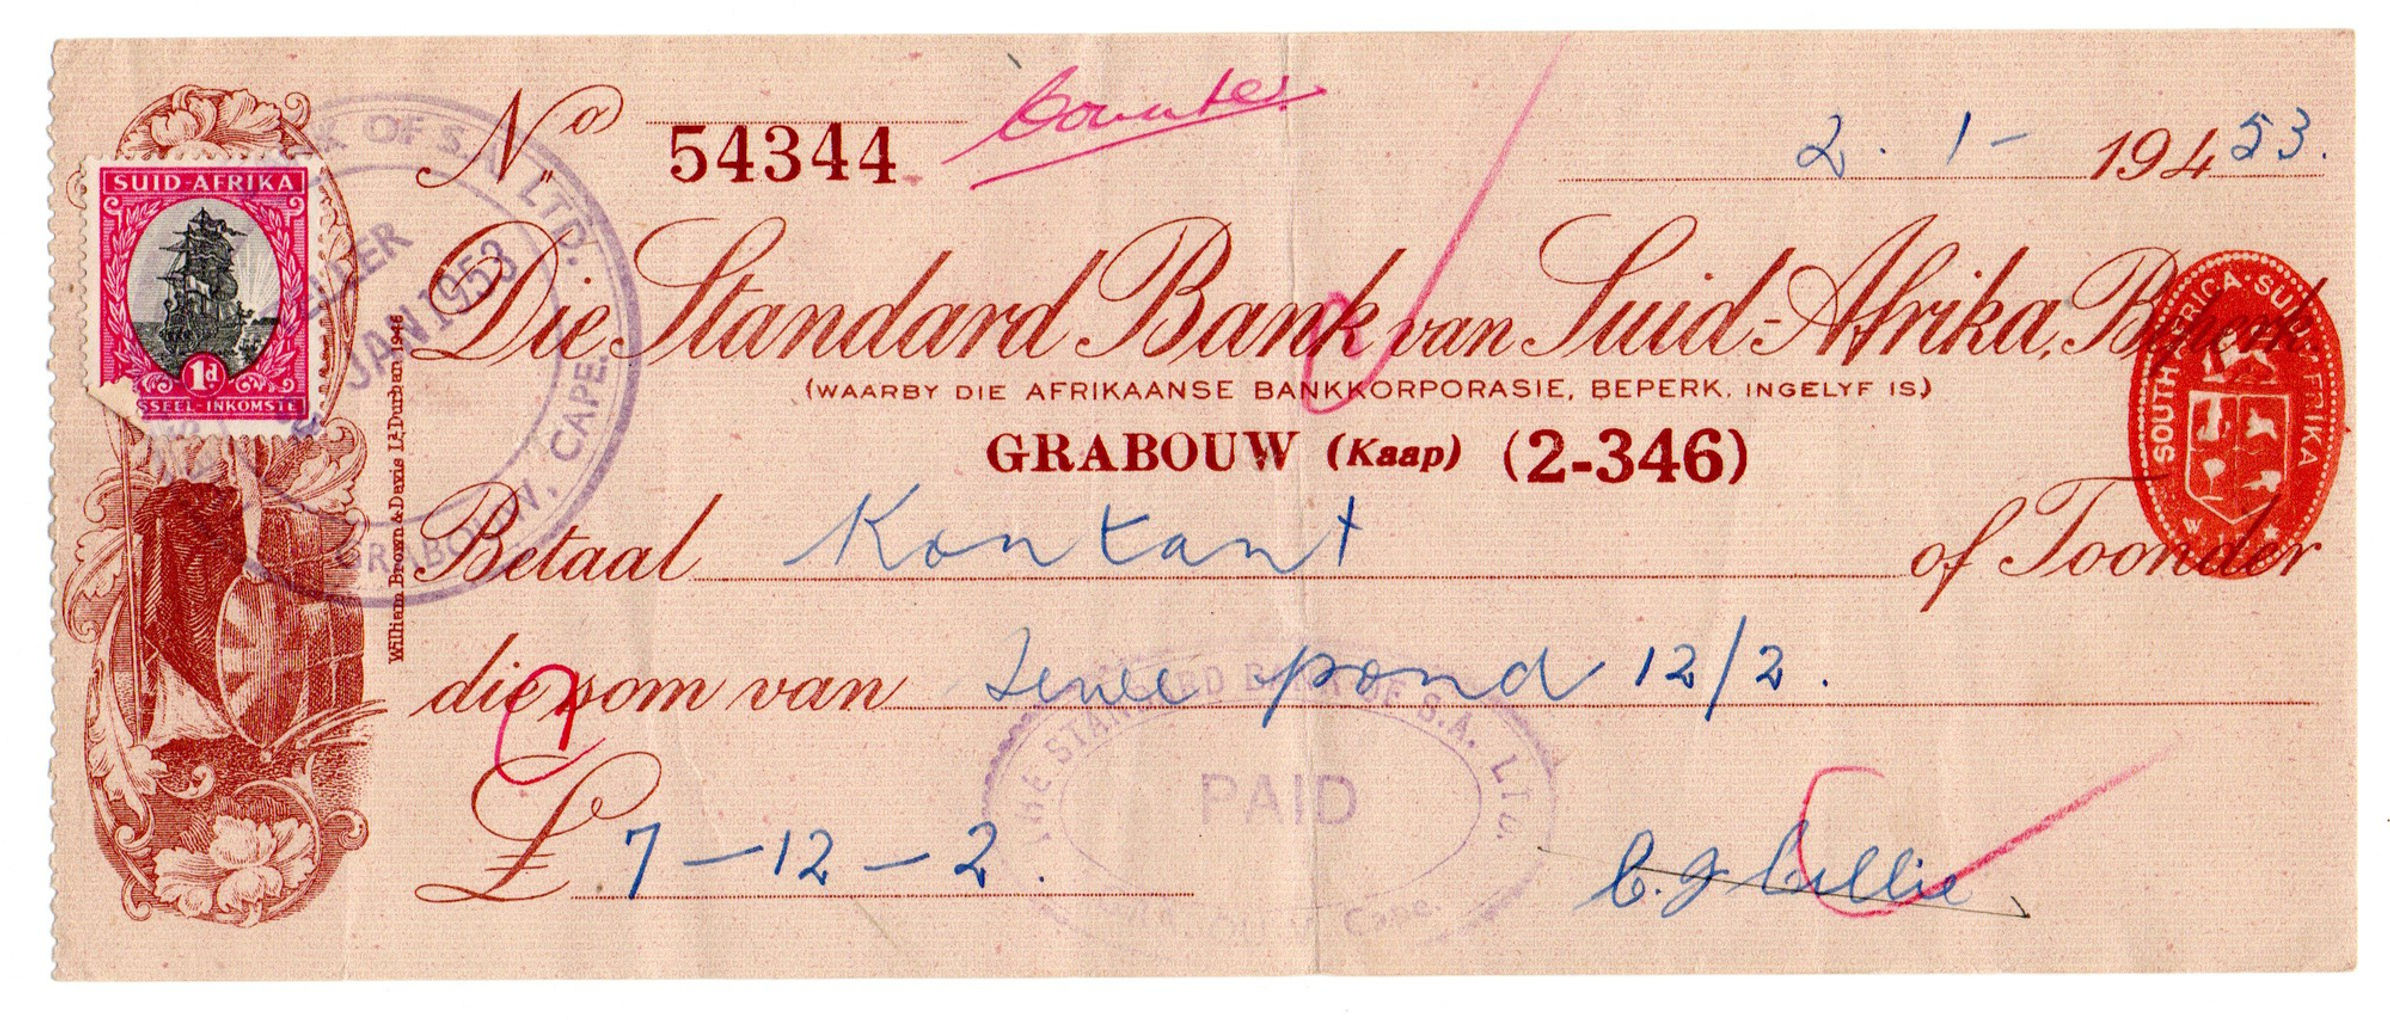 No. 54344
Counter
2. 1 - 194 53.
SUID-AFRIKA
1d
SSEEL-INKOMSTE
OF S.A. LTD.
TELLER
JAN 1953
GRABOUW, CAPE.
William Brown & Davis Ld Durban 1946
Die Standard Bank van Suid-Afrika, Beperk.
(WAARBY DIE AFRIKAANSE BANKKORPORASIE, BEPERK, INGELYF IS)
GRABOUW (Kaap) (2-346)
SOUTH AFRICA SUID AFRIKA
Betaal Kontant of Toonder
die som van Sewe pond 12/2.
£ 7 - 12 - 2.
THE STANDARD BANK OF S.A. LTD.
PAID
Cape.